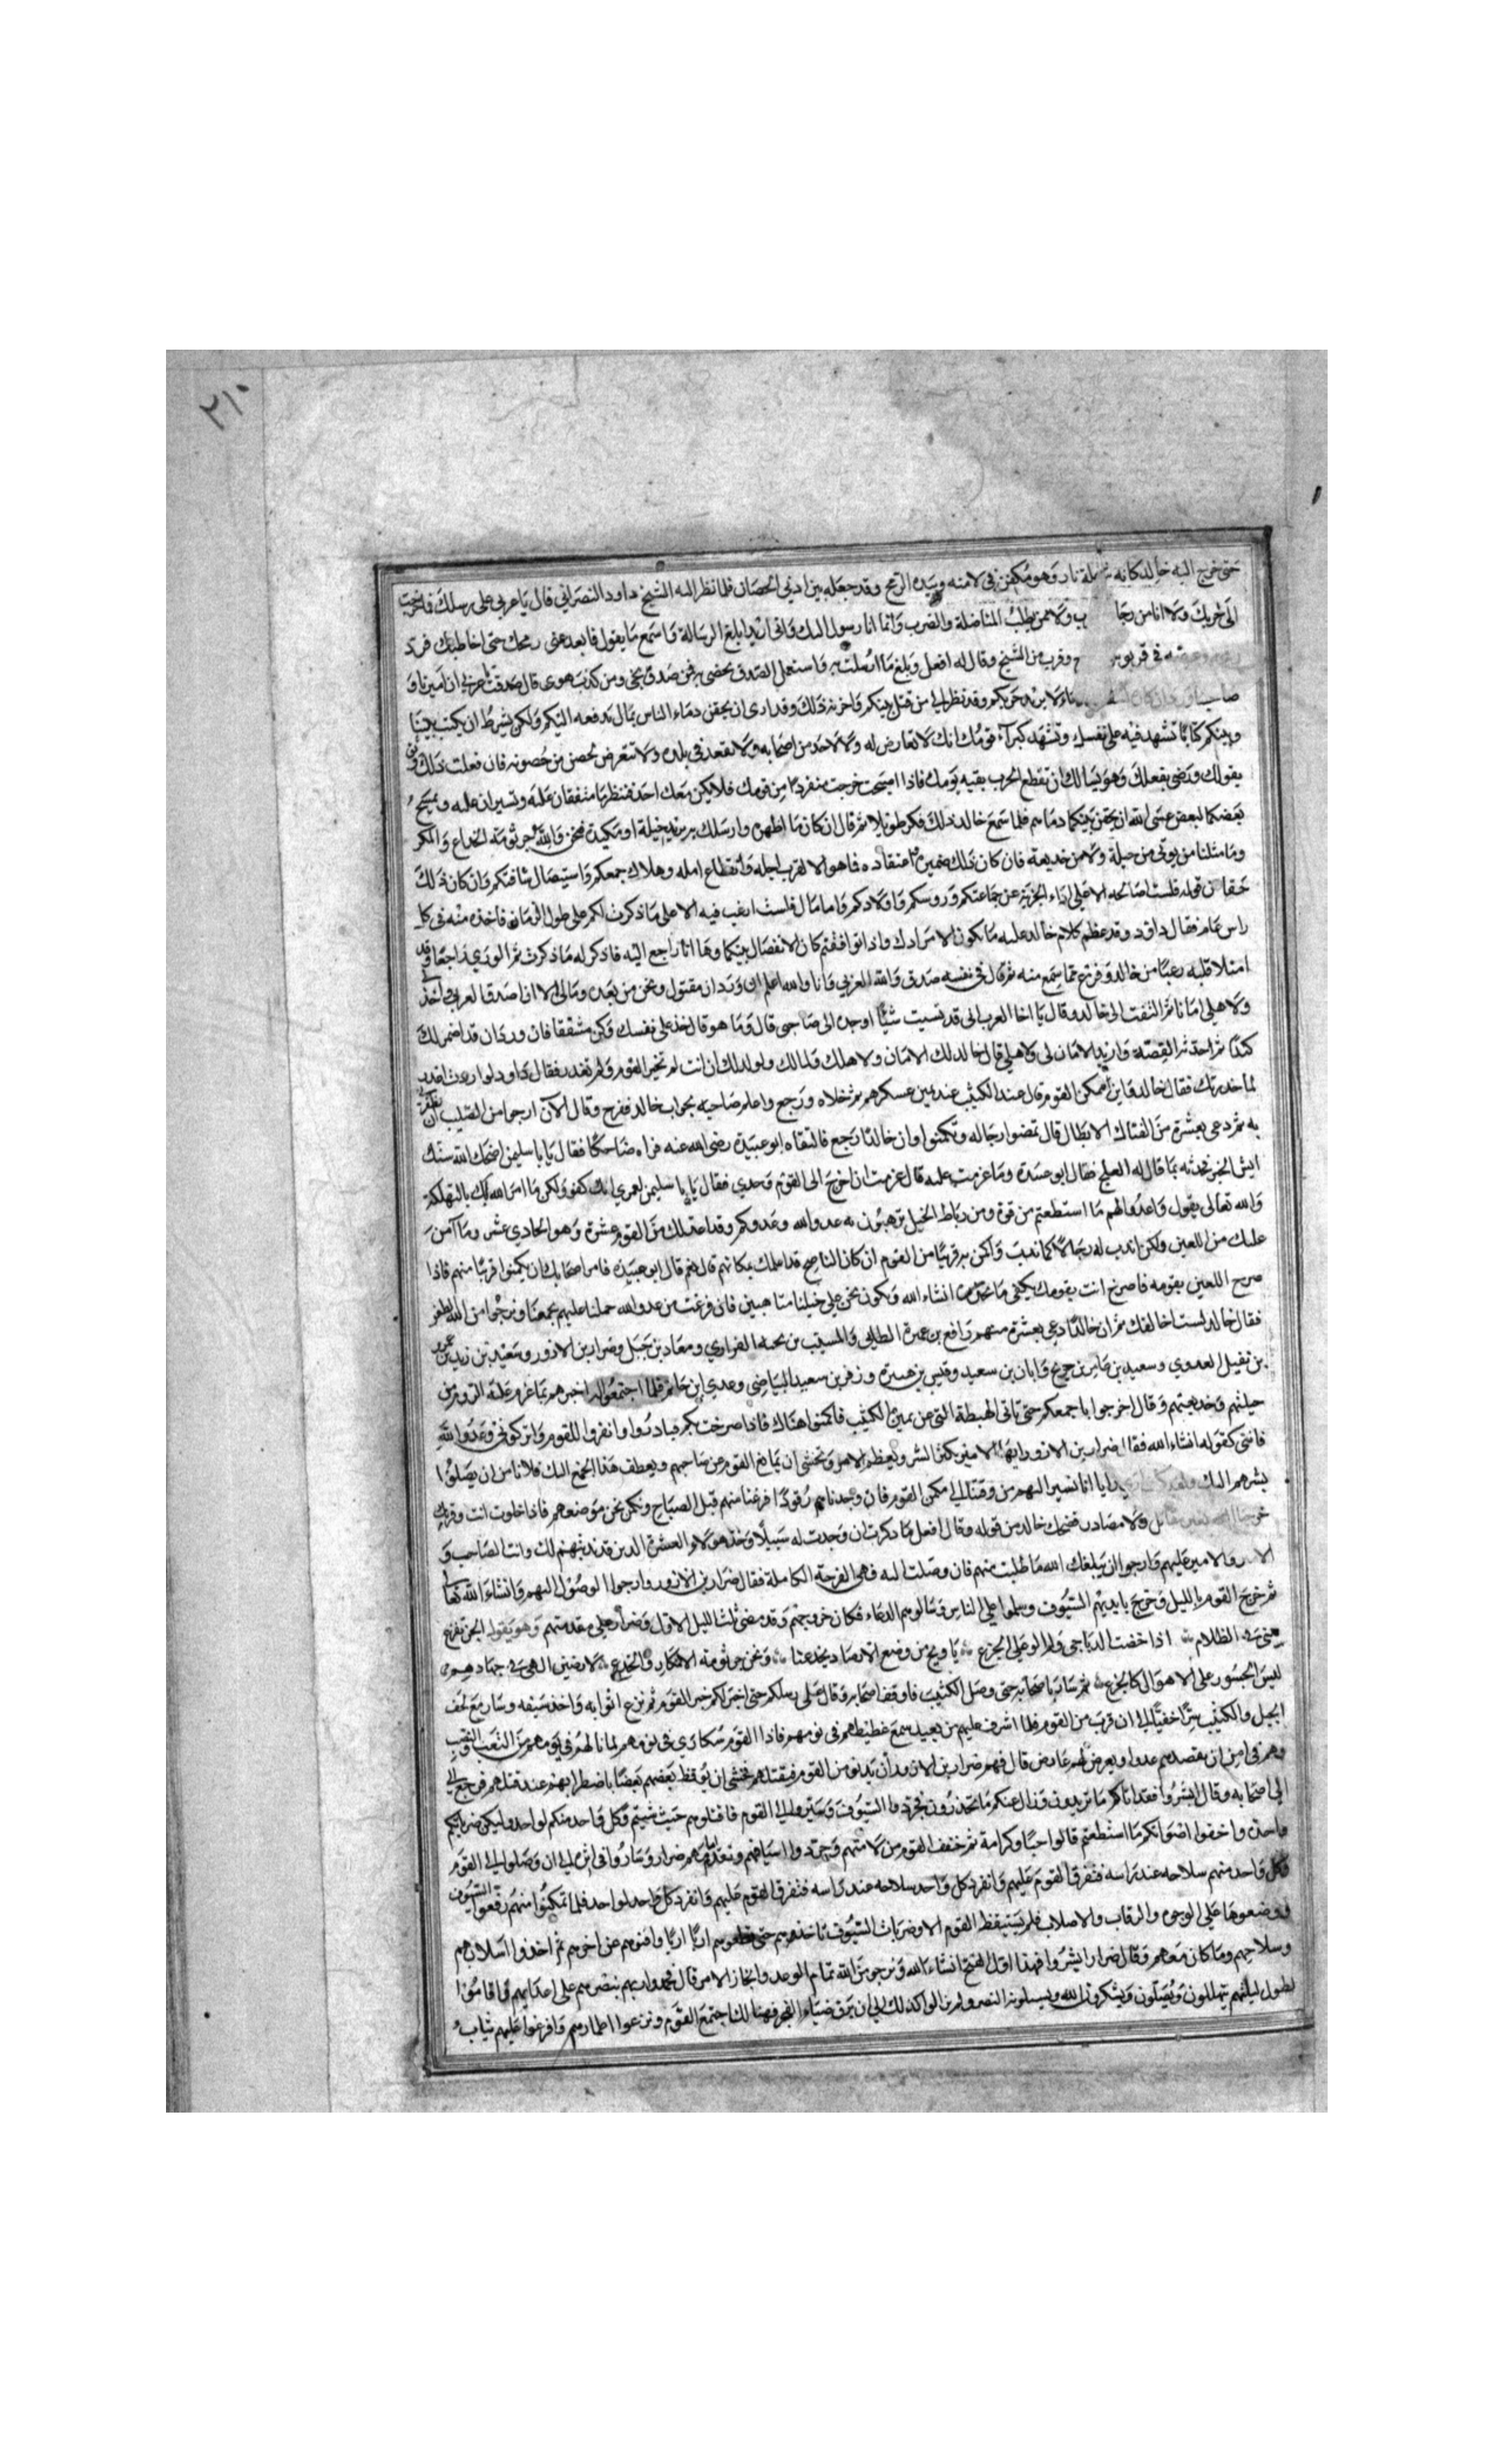 ٢١٠
حتى خرج اليه خالد كانه شعلة نار وهو مكفن في لامته وبيده الرمح وقد جعله بين اذني الحصان فلما نظر اليه الشيخ داود النصراني قال يا عربي على رسلك فما خرجت
الى حربك ولا انا من رجا ب ولا ممن يطلب المناضلة والضرب وانما انا رسول اليك واني اريد ابلغ الرسالة فاسمع ما يقول فابعد عني رمحك حتى اخاطبك فرد
في قربوس وقرب من الشيخ وقال له افعل وبلغ ما ارسلت به واستعمل الصدق تحضى به فمن صدق نجى ومن كذب هوى قال صدقت يا عربي ان اميرنا و
صاحبنا وردان لا يريد حربكم وقد نظر الى من قتل بينكم واحزنه ذلك وقد ارى ان يحقن دماء الناس بمال يدفعه اليكم ولكن بشرط ان يكتب بيننا
وبينكم كتابا تشهد فيه على نفسك وتشهد كبراء قومك انك لا تعارض له ولا لاحد من اصحابه ولا تقعد في بلده ولا تتعرض لحصن من حصونه فان فعلت ذلك وثق
بقولك ورضي بفعلك وهو يسالك ان تقطع الحرب بقيه يومك فاذا اصبحت خرجت منفردا من قومك فلا يكن معك احد فتنظر ما متفقان عليه وتسيران عليه ويسمح
بعضكما لبعض عسى الله ان يحقن بينكما دماءهم فلما سمع خالد ذلك فكر طويلا ثم قال ان كان ما اظهره وارسلك به يريد حيلة او مكيدة فنحن والله جرثومة الخداع والمكر
وما مثلنا من يوتى من حيلة ولا من خديعة فان كان ذلك ضميره واعتقاده فاهو الا لقرب اجله وانقطاع امله وهلاك جمعكم واستيصال شافتكم وان كان ذلك
حقا من قوله فلست اصالحه الا على اداء الجزية عن جماعتكم وروسكم واولادكم واما مال فلست ارغب فيه الا على ما ذكرت لكم على طول الزمان فاخذه منه في كل
راس عام فقال داود وقد عظم كلام خالد عليه ما يكون الا مرادك واذا توافقتم كان الانفصال بينكما وها انا راجع اليه فاذكر له ما ذكرت ثم الوى راجعا وقد
امتلا قلبه رعبا من خالد وفزع مما سمع منه ثم قال في نفسه صدق والله العربي وانا والله اعلم ان وردان مقتول ونحن من بعده ومالي الا ان اصدق العربي واخذ لي
ولاهلي امانا ثم التفت الى خالد وقال يا اخا العرب اني قد نسيت شيئا اوجده الي صاحبي قال وما هو قال خذ على نفسك وكن مشفقا فان وردان قد اضمر لك
كذا ثم احدثه القصة واريد الامان لي ولاهلي قال خالد لك الامان ولاهلك ومالك وولدك ان انت لم تخبر القوم ولم تغدر فقال داود لو اردت اغدر
لما حدثتك فقال خالد فاين مكمن القوم قال عند الكثيب عند يمين عسكرهم ثم خلاه ورجع واعلم صاحبه بجواب خالد ففرح وقال الان ارجوا من الصليب ان يظفرني
به ثم دعى بعشرة من الفتاك الابطال قال تمضوا رجاله وتكمنوا وان خالدا رجع فالتقاه ابو عبيدة رضي الله عنه فراه ضاحكا فقال يا با سليمن اضحك الله سنك
ايش الخبر فحدثه بما قال له العلج فقال ابو عبيدة وما عزمت عليه قال عزمت ان اخرج الى القوم وحدي فقال يا با سليمن لعمري انك كفو ولكن ما امر الله لك بالتهلكة
والله تعالى يقول واعدوا لهم ما استطعتم من قوة ومن رباط الخيل ترهبون به عدو الله وعدوكم وقد اعد لك من القوم عشرة وهو الحادي عشر وما آمن
عليك من اللعين ولكن اندب له رجالا كما ندب واكمن به قريبا من القوم ان كان الناصح قد اعلمك بمكانهم قال نعم قال ابو عبيدة فامر اصحابك ان يكمنوا قريبا منهم فاذا
صرخ اللعين بقومه فاصرخ انت بقومك يكفي ما تحذر انشاء الله ونكون نحن على خيلنا متاهبين فان فرغت من عدو الله حملنا عليهم بجمعنا ونرجوا من الله الظفر
فقال خالد لست اخالفك ثم ان خالدا دعى بعشرة منهم رافع بن عميرة الطائي والمسيب بن نجبه الفزاري ومعاذ بن جبل وضرار بن الازور وسعيد بن زيد بن عمرو
بن نفيل العدوي وسعيد بن عامر بن جريح وابان بن سعيد وقيس بن هبيرة وزفر بن سعيد البياضي وعدي ابن حاتم فلما اجتمعوا اليه اخبرهم بما عزم عليه الروم من
حيلتهم وخديعتهم وقال اخرجوا باجمعكم حتى تاتى الهبطة التي عن يمين الكثيب فاكمنوا هناك فاذا صرخت بكم فبادروا وانفروا للقوم واتركوني وعدو الله
فانني كفو له انشاء الله فقال ضرار بن الازور ايها الامير يكثر الشر ويعظم الامر ونخشى ان يمانع القوم عن صاحبهم ويعطف هذا الجمع اليك فلا نامن ان يصلوا
بشرهم اليك ارى رايا اننا نسير اليهم من وقتنا الى مكمن القوم فان وجدناهم رقودا فرغنا منهم قبل الصباح ونكمن نحن موضعهم فاذا خلوت انت وقرينك
خرجنا اليه ولا مصادر فضحك خالد من قوله وقال افعل ما ذكرت ان وجدت له سبيلا وخذ هولاء العشرة الذين قد ندبتهم لك وانت الصاحب و
والامير عليهم وارجوا ان يبلغك الله ما طلبت منهم فان وصلت اليه فهي الفرحة الكاملة فقال ضرار بن الازور وارجوا الوصول اليهم وانشاء الله تعالى
ثم خرج القوم بالليل وخرج بايديهم السيوف وسلموا على الناس وسالوهم الدعاء فكان خروجهم وقد مضى ثلث الليل الاول وضرار على مقدمتهم وهو يقول الجن تفزع
الظلام اذا خضت الدياجي ولم الوعلى الجزع يا ويح من وضع الارصاد يخدعنا ونحن جرثومة الانكار والخدع لارضين الهى في جهادهم
ليس الجسور على الاهوال كالجزع ثم سار باصحابه حتى وصل الكثيب فاوقف اصحابه وقال على رسلكم حتى اخبر لكم خبر القوم ثم نزع اثوابه واخذ سيفه وسار مع لحف
الجبل والكثيب سرا خفيا الى ان قرب من القوم فلما اشرف عليهم من بعيد سمع غطيطهم في نومهم فاذا القوم سكارى في نومهم لما نالهم في يومهم من التعب والنصب
وهم في امن ان يقصدهم عدوا ويعرض لهم عارض قال فهم ضرار بن الازور ان يدنو من القوم فيقتلهم فخشى ان يوقظ بعضهم بعضا باضطرابهم عند قتلهم فرجع الى
الى اصحابه وقال ابشروا فقد اتاكم ما تريدون وزال عنكم ما تحذرون فجردوا السيوف وسيروا الى القوم فاقتلوهم حيث شيتم وكل واحد منكم لواحد وليكن ضربكم
واحدة واخفوا اصواتكم ما استطعتم قالوا حبا وكرامة ثم خفف القوم من لامتهم وجردوا اسيافهم وتقدم امامهم ضرار وساروا في اثره الى ان وصلوا الى القوم
فكل واحد منهم سلاحه عند راسه فتفرق القوم عليهم وانفرد كل واحد سلاحه عند راسه فتفرق القوم عليهم وانفرد كل واحد لواحد فلما تمكنوا منهم رفعوا السيوف
ووضعوها على الوجوه والرقاب والاصلاب فلم يستيقظ القوم الا وضربات السيوف تاخذهم حتى قطعوهم اربا اربا وافنوهم عن اخرهم ثم اخذوا اسلابهم
وسلاحهم وما كان معهم وقال ضرار ابشروا فهذا اول الفتح انشاء الله ونرجو من الله تمام الوعد وانجاز الامر قال فحمدوا ربهم بنصرهم على اعدايهم واقاموا
بطول ليلتهم يتهللون ويصلون ويشكرون الله ويسيلونه النصر ولم يزالوا كذلك الى ان برق ضياء الفجر فهنالك اجتمع القوم ونزعوا اطمارهم وافرغوا عليهم ثياب